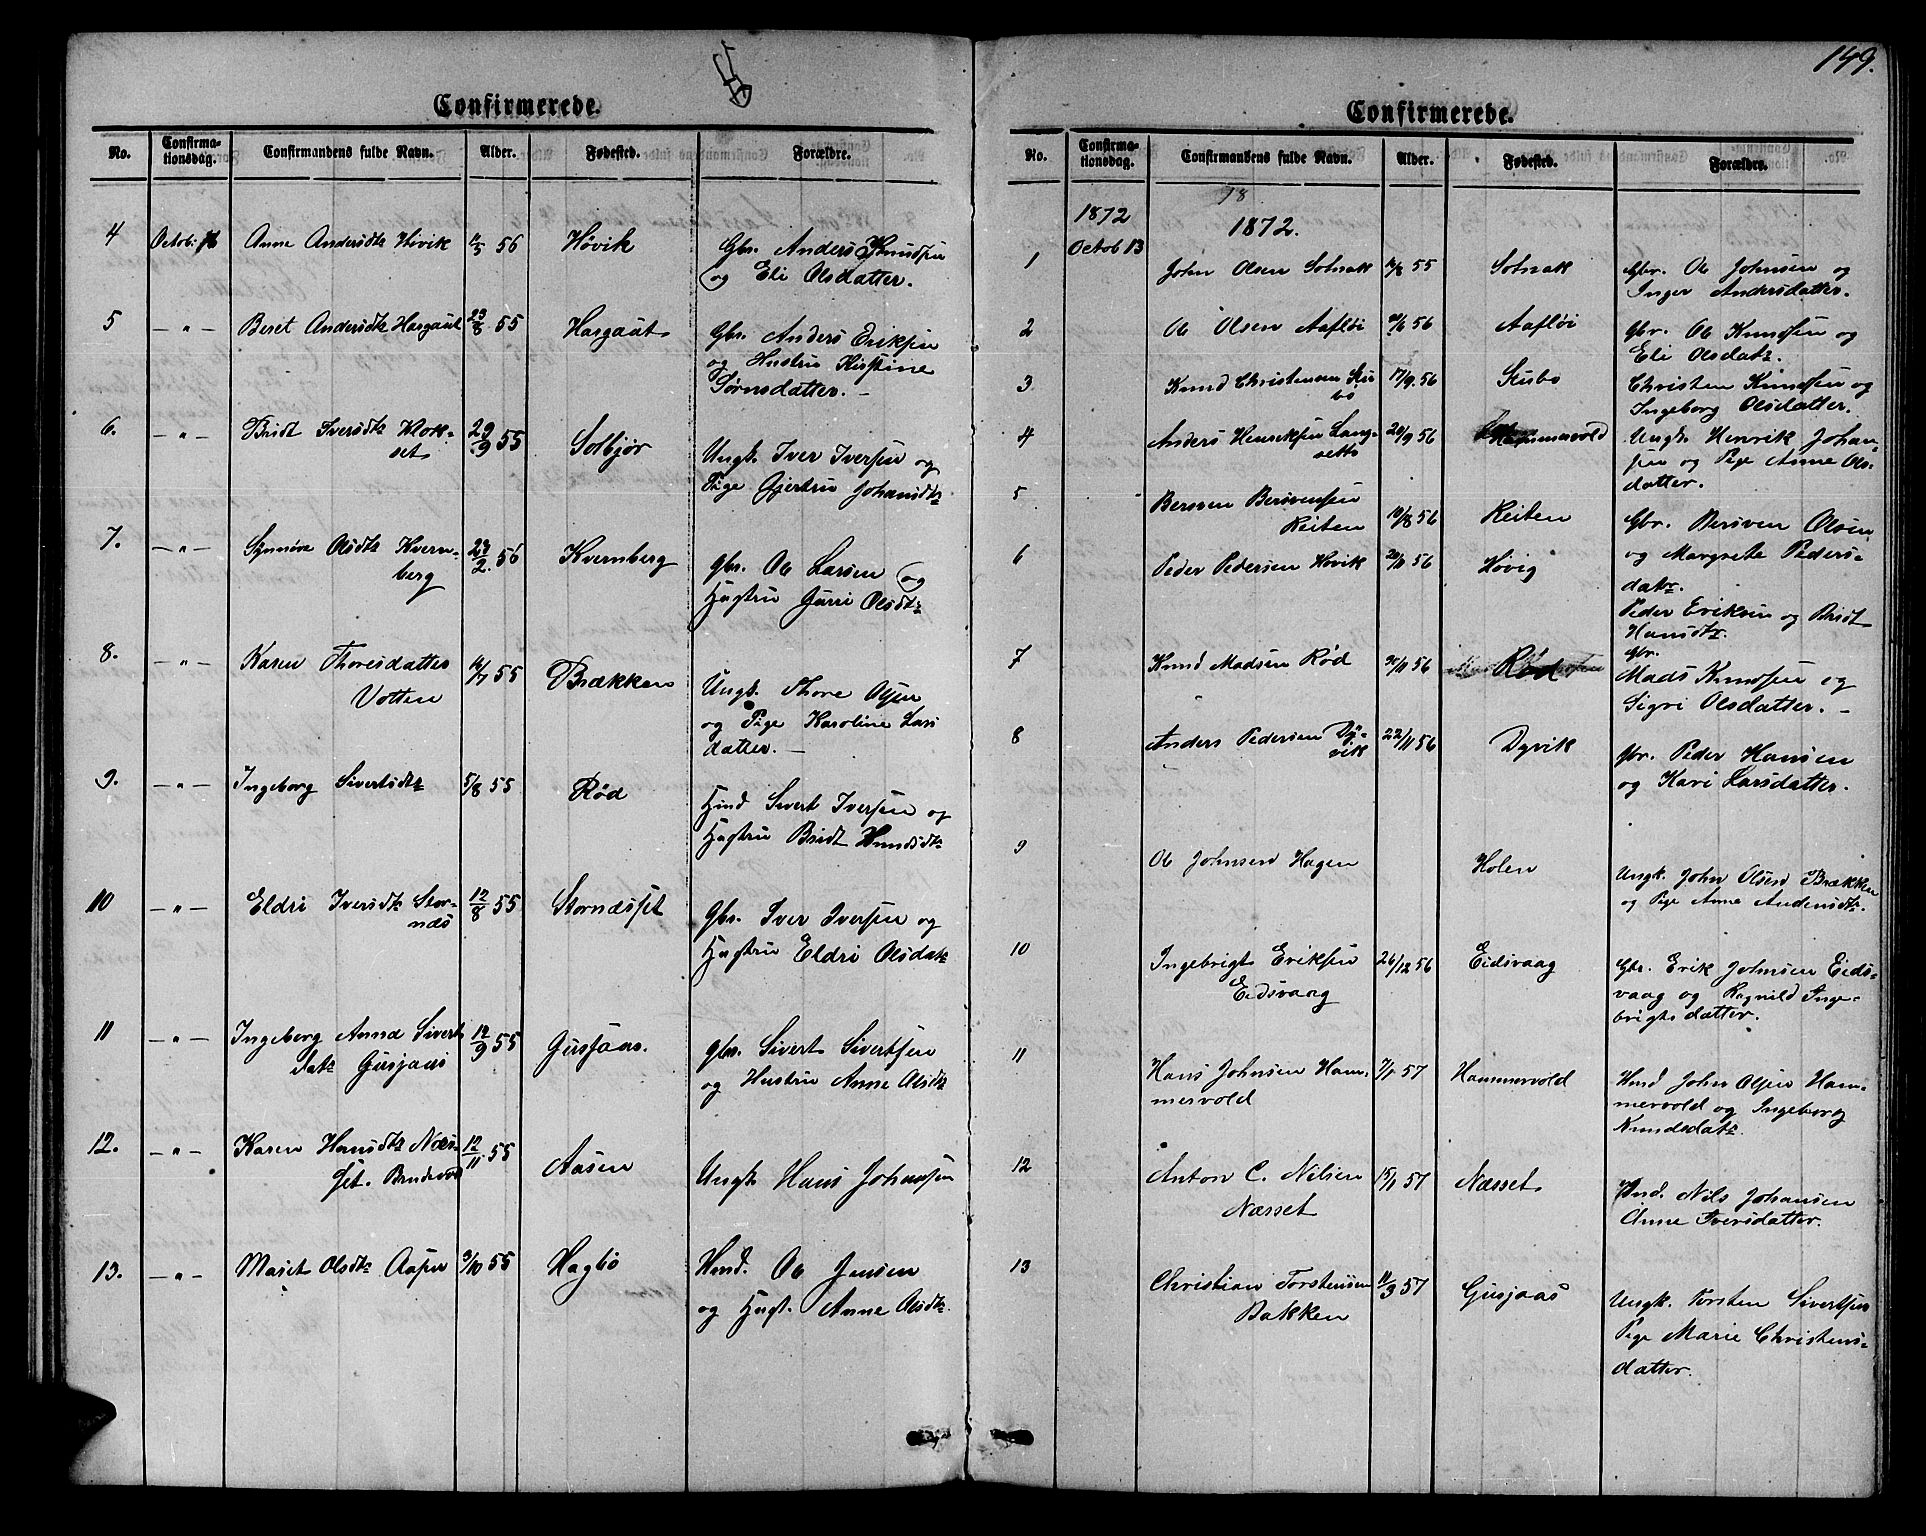 Confirmerede.
No. Confirmationsdag. Confirmandens fulde Navn. Alder. Fødested. Forældre.
4 Octob: 16 Anne Andersdtr Høvik 11/3 56 Høvik Gbr. Anders Knudsen
og Eli Olsdatter.
5 — " — Beret Andersdtr Hargaut 23/8 55 Hargaut Gbr. Anders Eriksen
og Hustru Kirstine
Sørnsdatter. —
6. — " — Bridt Iversdtr Klok-
set 29/9 55 Solbjør Ungk. Iver Iversen og
Pige Gjertru Johansdtr
7. — " — Synnøve Olsdtr Kvern-
berg 28/2. 56 Kvernberg Gbr. Ole Larsen og
Hustru Gurri Olsdtr
8. — " — Karen Thoresdatter
Votten 55 Brækken Ungk. Thore Olsen
og Pige Karoline Lars
datter. —
9. — " — Ingeborg Sivertsdtr 5/8 55 Rød Hmd Sivert Iversen og
Hustru Bridt Knudsdtr
10 — " — Eldri Iversdtr Stor-
næs 12/8 55 Stornæsset Gbr. Iver Iversen og
Hustru Eldri Olsdatr
11 — " — Ingeborg Anna Sivert
datr Gusjaas 12/9 55 Gusjaas. Gbr. Sivert Sivertsen
og Hustru Anne Olsdtr
12. — " — Karen Hansdtr Næs-
set. 12/11 55 Aasen Ungk Hans Johansen
13. — " — Marit Olsdtr Aasen 3/10 55 Hagbø Hmd. Ole Jensen
og Hust. Anne Olsdtr.
149.
Confirmerede.
No. Confirmationsdag. Confirmandens fulde Navn. Alder. Fødested. Forældre.
18
1872 1872.
1 Octob 13 John Olsen Solnak 55 Solnak Gbr. Ole Johnsen og
Inger Andersdatter.
2 Ole Olsen Aafløi 56 Aafløi Gbr. Ole Knudsen og
Eli Olsdatr.
3 Knud Christensen Stu
bø 17/9 56 Stubø Christen Knudsen og
Ingeborg Olsdatter.
4 Anders Henriksen Lang-
setts 24/9 56 Hammervold Ungk. Henrik Johan
sen og Pige Anne Ols-
datter.
5 Bersven Bersvensen
Reiten 10/8 56 Reiten Gbr. Bersven Olsen
og Margrete Peders-
datr.
6 Peder Pedersen Høvik 20/11 56 Høvig Peder Eriksen og Bridt
Hansdtr.
7 Knud Madsen Rød 30/11 56 Rød Gbr.
Mads Knudsen og
Sigri Olsdatter. —
8 Anders Pedersen Dy-
vik 22/11 56 Dyvik Gbr. Peder Hansen
og Kari Larsdatter.
9 Ole Johnsen Hagen Holen Ungk. John Olsen Brækken
og Pige Anne Andersdtr.
10 Ingebrigt Eriksen
Eidsvaag 26/12 56 Eidsvaag Gbr. Erik Johnsen Eids-
vaag og Ragnild Inge-
brigtsdatter.
11 Hans Johnsen Ham-
mervold 7/1 57 Hammervold Hmd John Olsen Ham-
mervold og Ingeborg
Knudsdatr.
12 Anton C. Nilsen
Næsset 15/1 57 Næsset Hmd. Nils Johansen
Anne Iversdatter.
13 Christian Torstensen
Bakken 11/3 57 Gusjaas Ungk. Torsten Sivertsen
Pige Marie Christens-
datter.